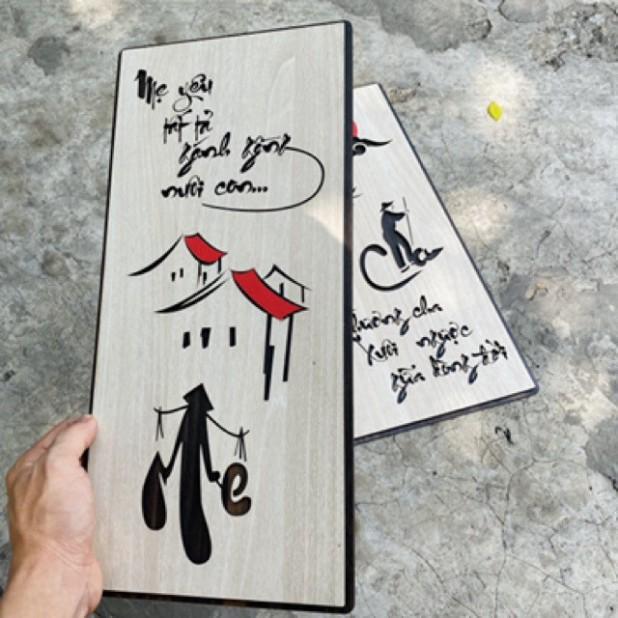 Mẹ yêu
tất tả
gánh gồng
nuôi con...
Mẹ
Cha
thương cha
xuôi ngược
giữa dòng đời